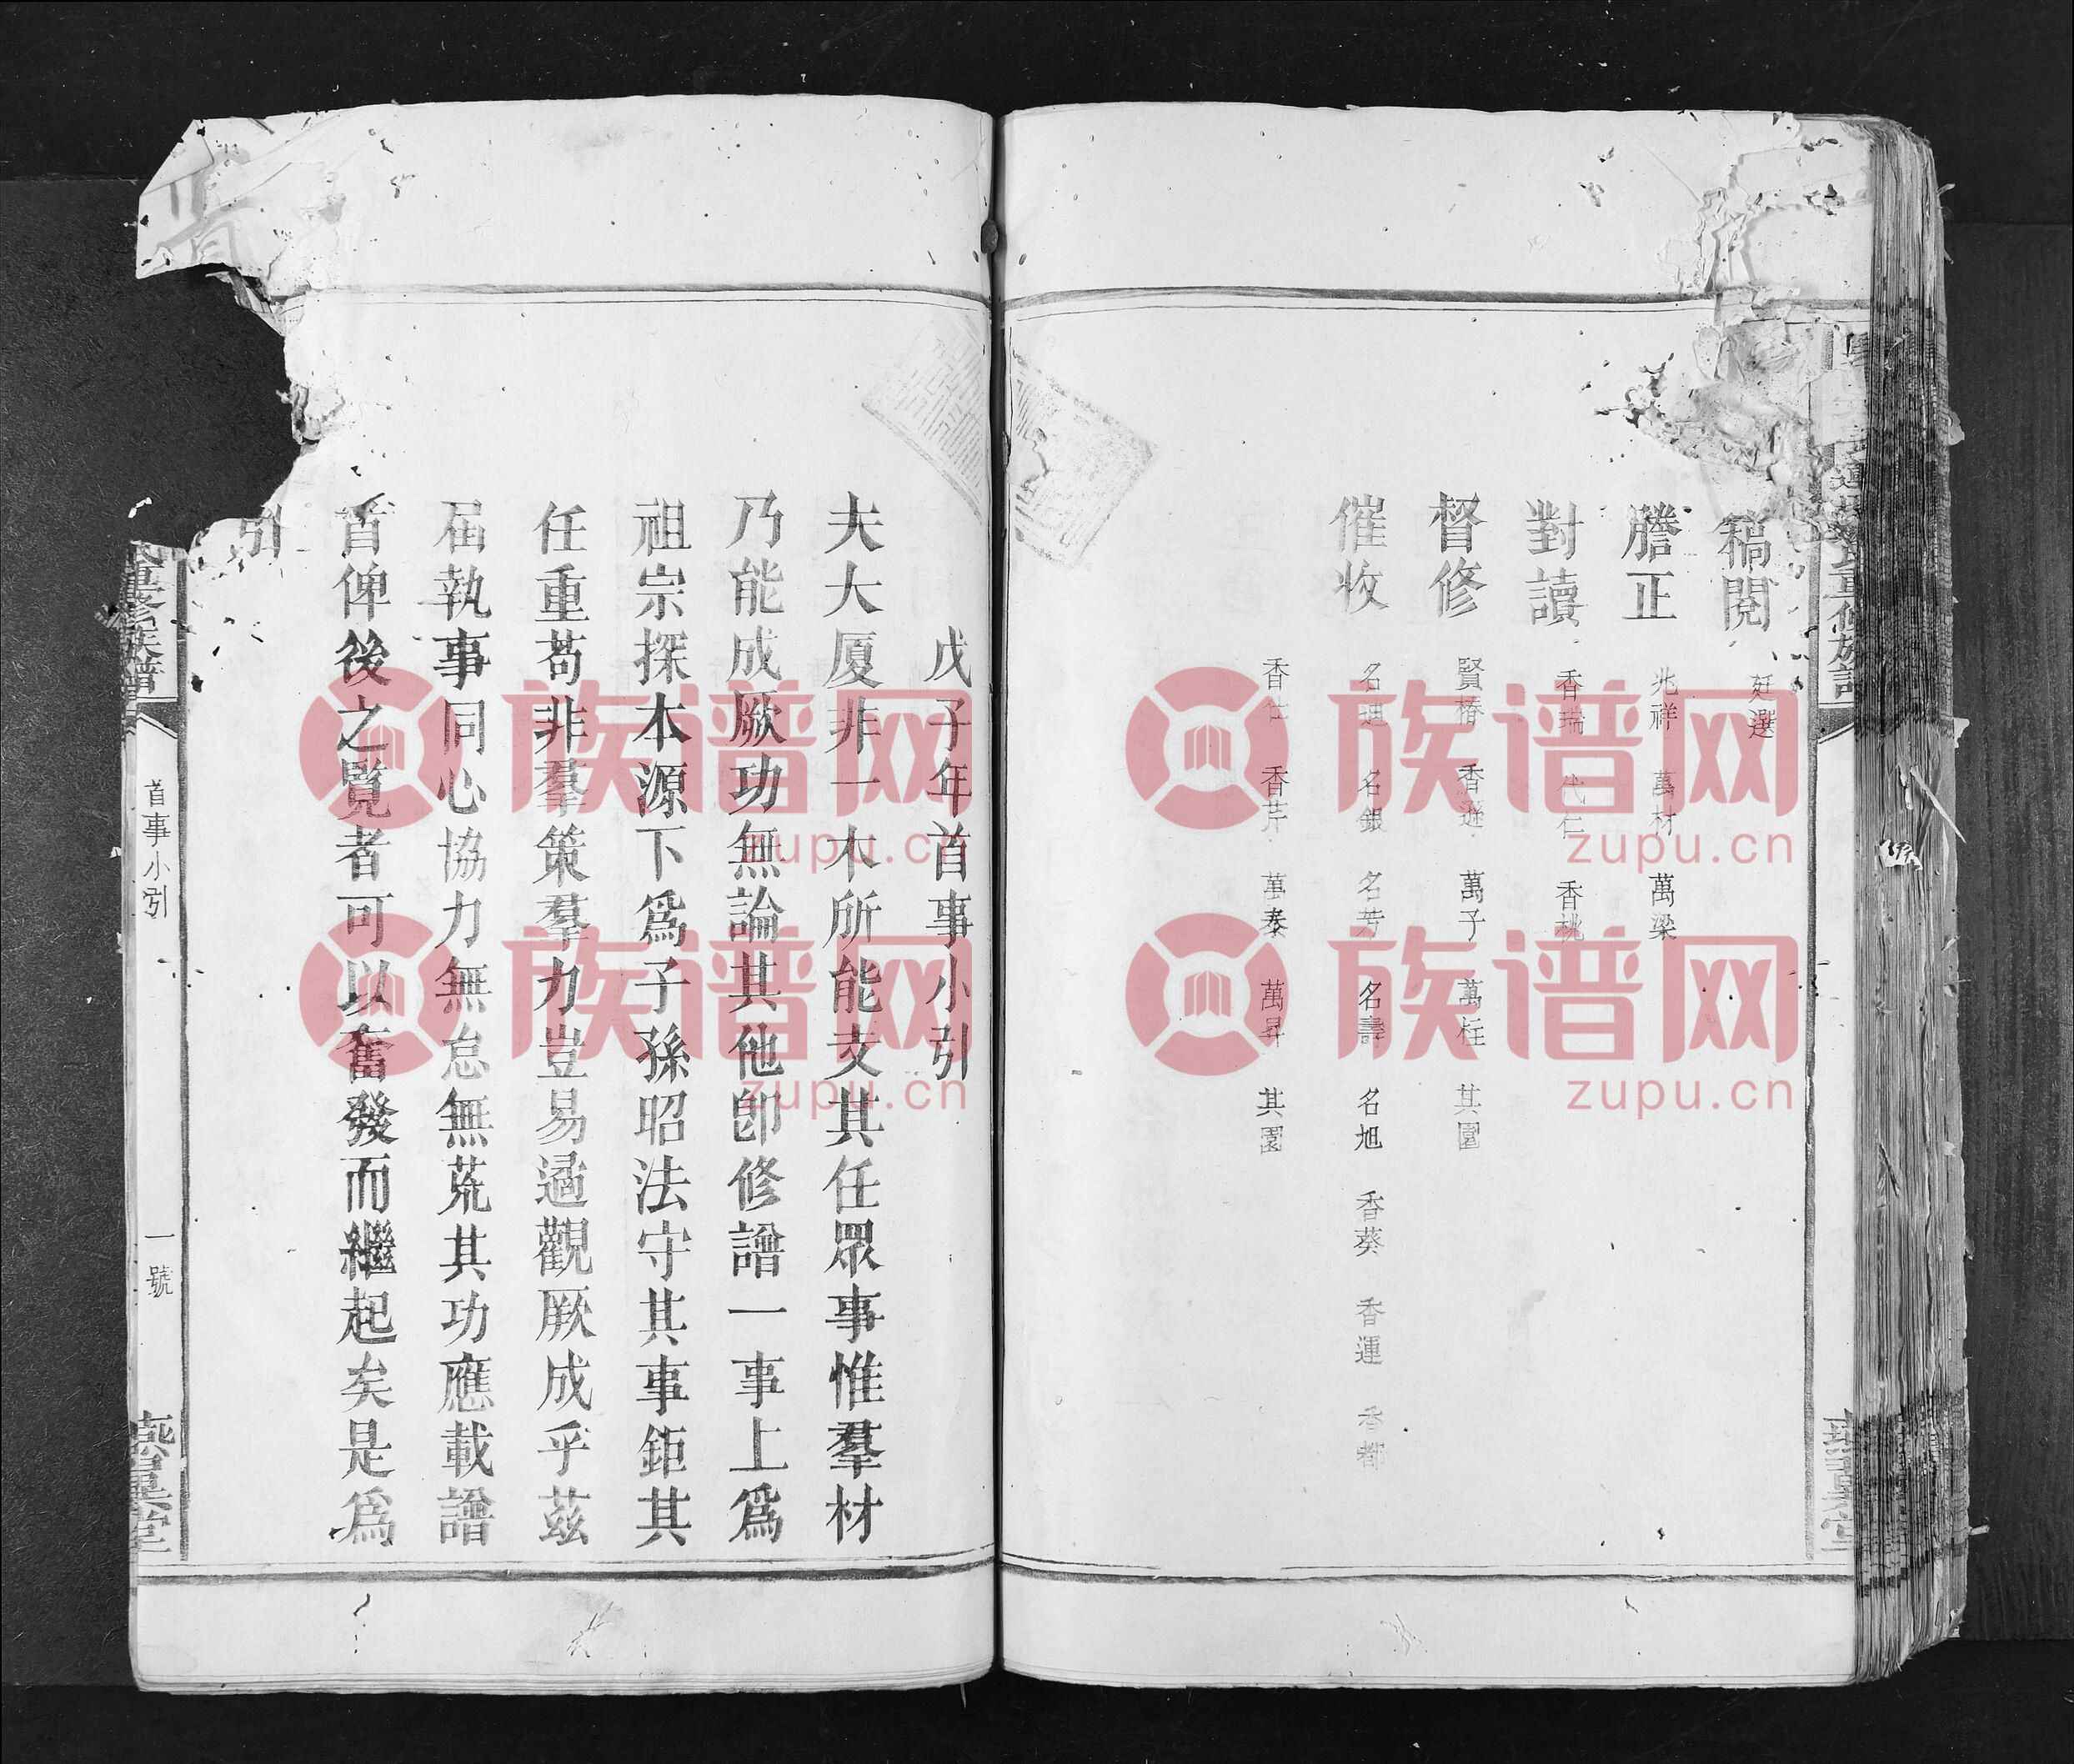 稿閱 廷選
謄正 兆祥 萬材 萬梁
對讀 香瑞 代仁 香桃
督修 賢椿 香遊 萬子 萬柱 其園
催收 名迪 名銀 名芳 名壽 名旭 香葵 香運 香都
香仕 香芹 萬泰 萬昇 其園
戊子年首事小引
夫大廈非一木所能支其任眾事惟羣材
乃能成厥功無論其他卽修譜一事上爲
祖宗探本源下爲子孫昭法守其事鉅其
任重苟非羣策羣力豈易遹觀厥成乎茲
屆執事同心協力無怠無荒其功應載譜
首俾後之覽者可以奮發而繼起矣是爲
引
重修族譜
首事小引
一號
族谱网
zupu.cn
族谱网
zupu.cn
族谱网
zupu.cn
族谱网
zupu.cn